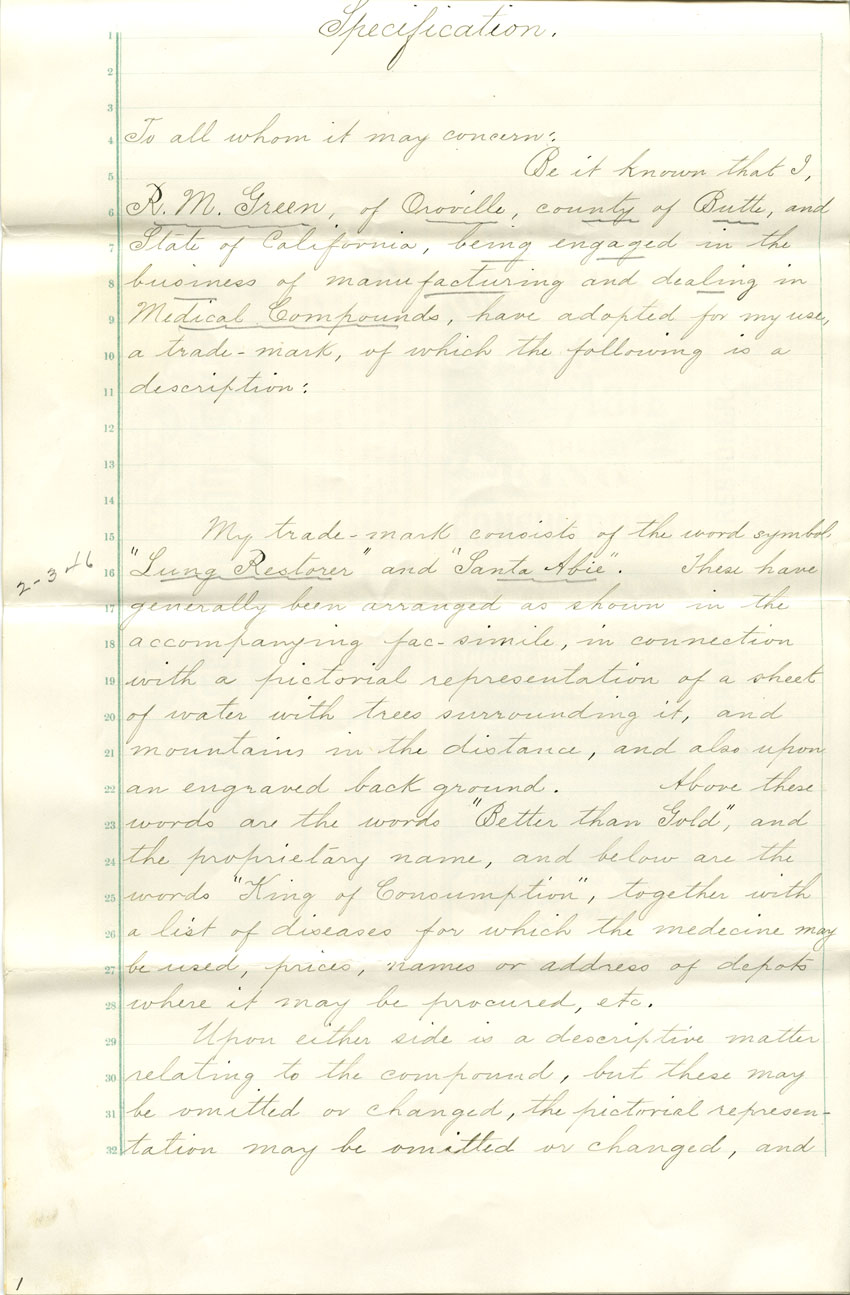 Specification.
1
2
3
4 To all whom it may concern:
5 Be it known that I,
6 R. M. Green, of Oroville, county of Butte, and
7 State of California, being engaged in the
8 business of manufacturing and dealing in
9 Medical Compounds, have adopted for my use,
10 a trade-mark, of which the following is a
11 description:
12
13
14
15 My trade-mark consists of the word symbol
2-3
16 "Lung Restorer" and "Santa Abie". These have
17 generally been arranged as shown in the
18 accompanying fac-simile, in connection
19 with a pictorial representation of a sheet
20 of water with trees surrounding it, and
21 mountains in the distance, and also upon
22 an engraved back ground. Above these
23 words are the words "Better than Gold", and
24 the proprietary name, and below are the
25 words "King of Consumption", together with
26 a list of diseases for which the medecine may
27 be used, prices, names or address of depots
28 where it may be procured, etc.
29 Upon either side is a descriptive matter
30 relating to the compound, but these may
31 be omitted or changed, the pictorial represen-
32 tation may be omitted or changed, and
1